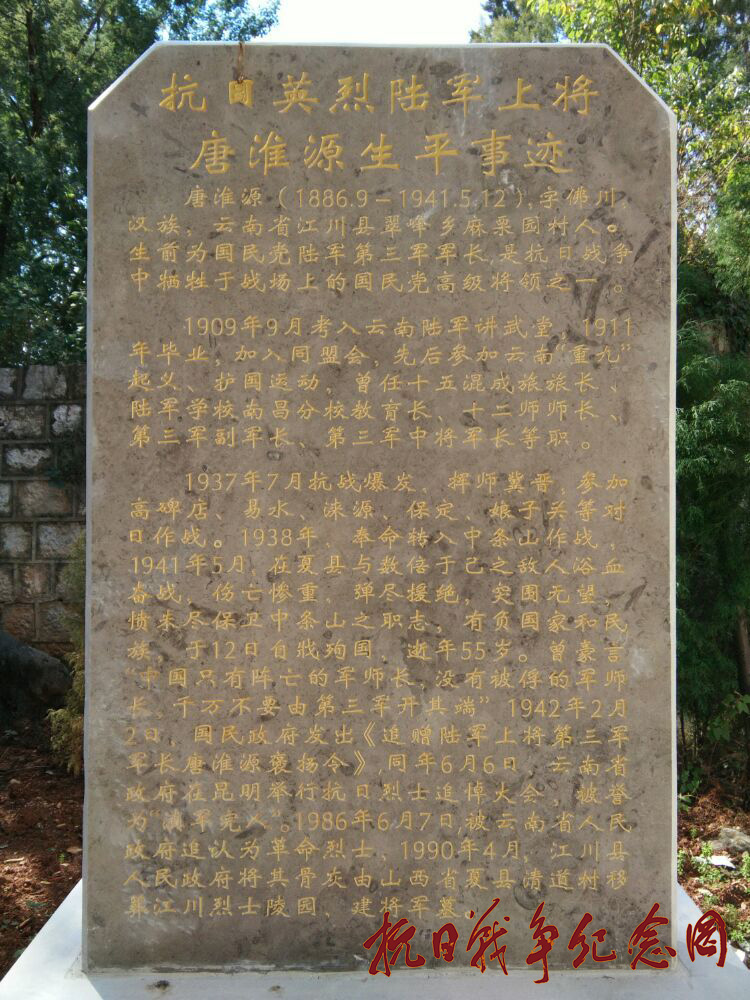 抗日英烈陆军上将
唐淮源生平事迹
唐淮源（1886.9－1941.5.12），字佛川，
汉族，云南省江川县翠峰乡麻栗园村人。
生前为国民党陆军第三军军长，是抗日战争
中牺牲于战场上的国民党高级将领之一。
1909年9月考入云南陆军讲武堂，1911
年毕业，加入同盟会，先后参加云南“重九”
起义、护国运动，曾任十五混成旅旅长、
陆军学校南昌分校教育长、十二师师长、
第三军副军长、第三军中将军长等职。
1937年7月抗战爆发，挥师冀晋，参加
高碑店、易水、涞源、保定、娘子关等对
日作战。1938年，奉命转入中条山作战，
1941年5月，在夏县与数倍于己之敌人浴血
奋战，伤亡惨重，弹尽援绝，突围无望，
愤未尽保卫中条山之职志，有负国家和民
族，于12日自戕殉国，逝年55岁。曾豪言
“中国只有阵亡的军师长，没有被俘的军师
长，千万不要由第三军开其端”1942年2月
2日，国民政府发出《追赠陆军上将第三军
军长唐淮源褒扬令》同年6月6日，云南省
政府在昆明举行抗日烈士追悼大会，被誉
为“滇军完人”。1986年6月7日，被云南省人民
政府追认为革命烈士，1990年4月，江川县
人民政府将其骨灰由山西省夏县清道村移
葬江川烈士陵园，建将军墓。
抗日战争纪念网